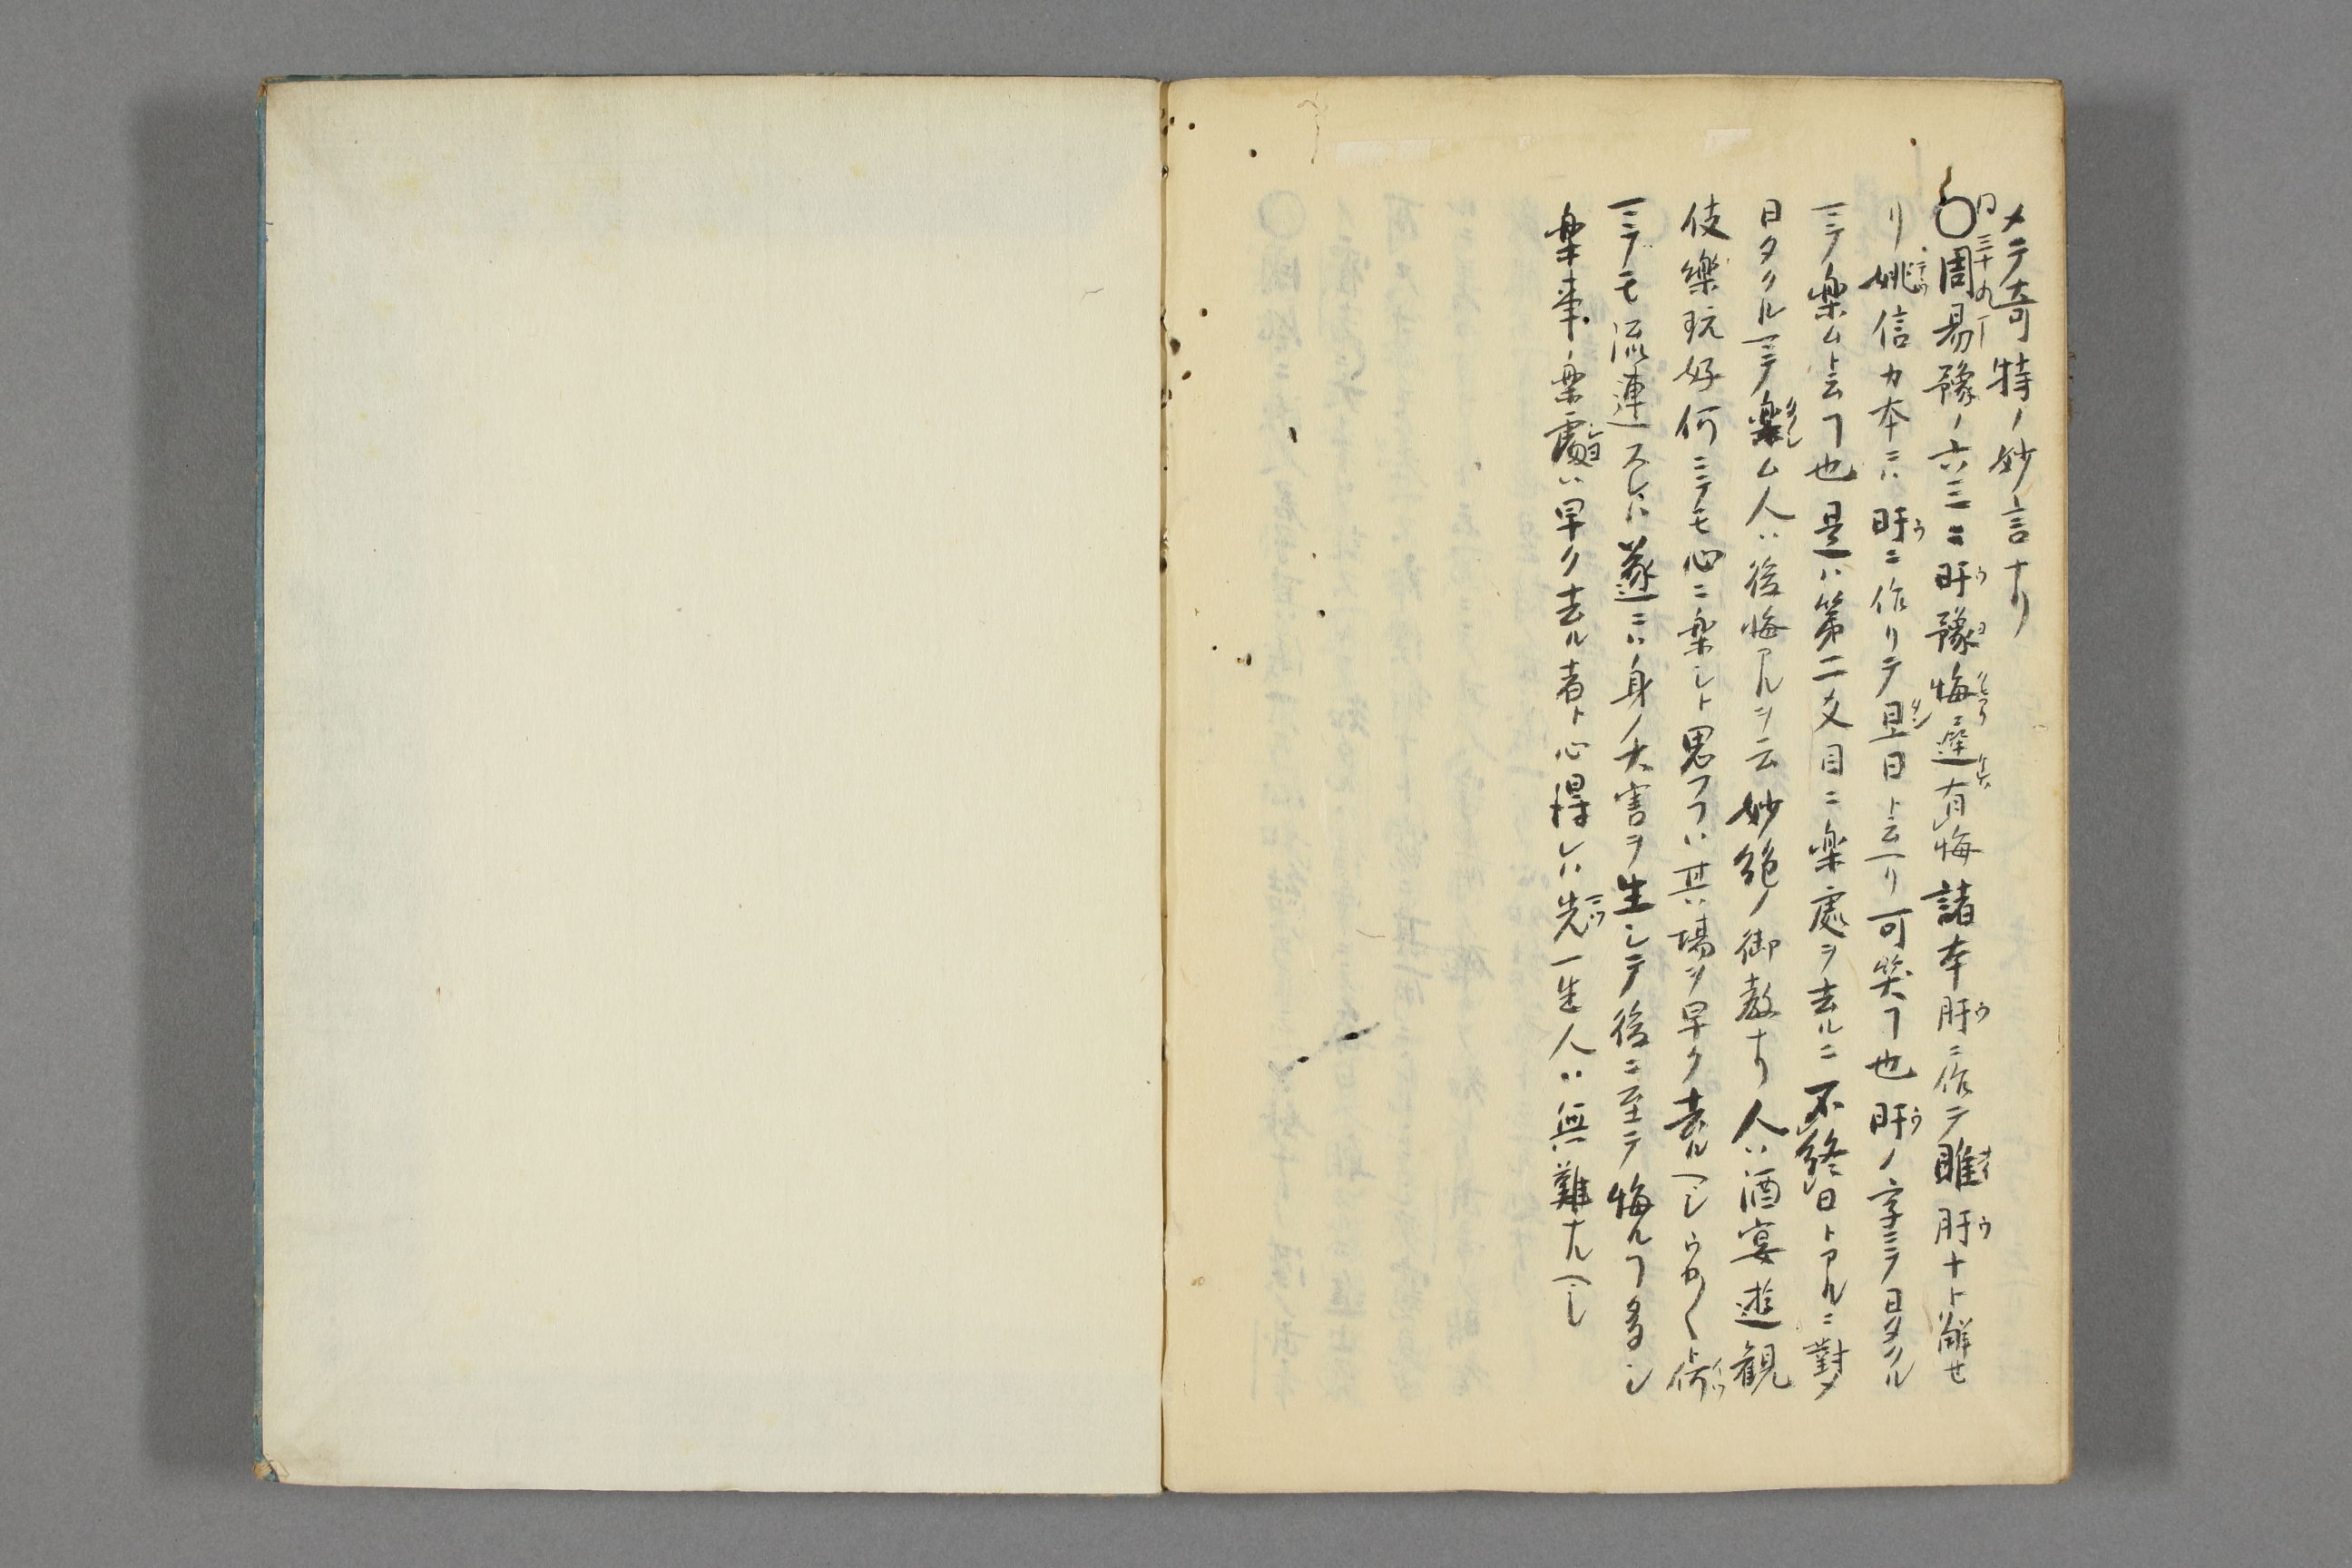 メテ奇特ノ妙言ナリ
同三十九丁
〇周易豫ノ六三ニ盱豫悔遲有悔諸本盱ニ作テ睢盱ナト解セ
リ姚信カ本ニハ旴ニ作リテ旦日ト云ヘリ可笑ヿ也旴ノ字ニテ日タクル
マテ楽ムト云ヿ也是ハ第二爻目ニ楽處ヲ去ルニ不終日トアルニ對メ
日タクルマテ楽ム人ハ後悔アルヲ云妙絶ノ御教ナリ人ハ酒宴遊観
伎樂玩好何ニテモ心ニ楽シト思フヿハ其場ヲ早ク去ルヘシウカ〱ト
マテモ流連スレハ遂ニハ身ノ大害ヲ生シテ後ニ至テ悔ルヿ多シ
楽事楽處ハ早ク去ル者ト心得レハ先一生人ハ無難ナルヘシ